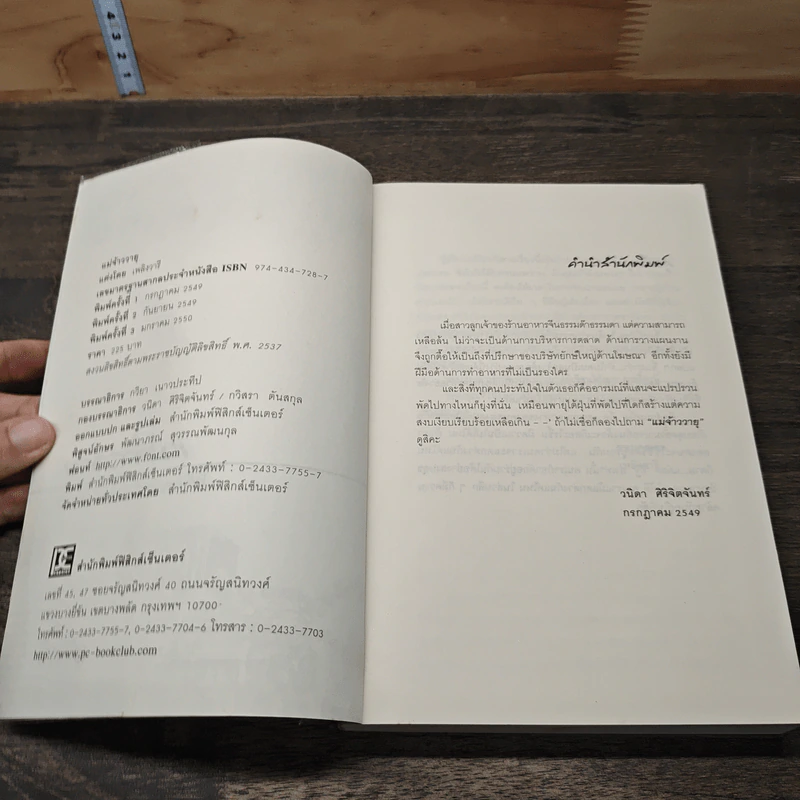 4 3 2 1
แม่จ้าววายุ
แต่งโดย เพลิงวารี
เลขมาตรฐานสากลประจำหนังสือ ISBN 974-434-728-7
พิมพ์ครั้งที่ 1 กรกฎาคม 2549
พิมพ์ครั้งที่ 2 กันยายน 2549
พิมพ์ครั้งที่ 3 มกราคม 2550
ราคา 225 บาท
สงวนลิขสิทธิ์ตามพระราชบัญญัติลิขสิทธิ์ พ.ศ. 2537
บรรณาธิการ กวิยา เนาวประทีป
กองบรรณาธิการ วนิดา ศิริจิตจันทร์ / กวิสรา ตันสกุล
ออกแบบปก และรูปเล่ม สำนักพิมพ์ฟิสิกส์เซ็นเตอร์
พิสูจน์อักษร พัฒนาภรณ์ สุวรรณพัฒนกุล
ฟอนท์ http://www.font.com
พิมพ์ สำนักพิมพ์ฟิสิกส์เซ็นเตอร์ โทรศัพท์ : 0-2433-7755-7
จัดจำหน่ายทั่วประเทศโดย สำนักพิมพ์ฟิสิกส์เซ็นเตอร์
สำนักพิมพ์ฟิสิกส์เซ็นเตอร์
เลขที่ 45, 47 ซอยจรัญสนิทวงศ์ 40 ถนนจรัญสนิทวงศ์
แขวงบางยี่ขัน เขตบางพลัด กรุงเทพฯ 10700
โทรศัพท์ : 0-2433-7755-7, 0-2433-7704-6 โทรสาร : 0-2433-7703
http://www.pc-bookclub.com
คำนำสำนักพิมพ์
เมื่อสาวลูกเจ้าของร้านอาหารจีนธรรมด๊าธรรมดา แต่ความสามารถ
เหลือล้น ไม่ว่าจะเป็นด้านการบริหารการตลาด ด้านการวางแผนงาน
จึงถูกตื๊อให้เป็นถึงที่ปรึกษาของบริษัทยักษ์ใหญ่ด้านโฆษณา อีกทั้งยังมี
ฝีมือด้านการทำอาหารที่ไม่เป็นรองใคร
และสิ่งที่ทุกคนประทับใจในตัวเธอก็คืออารมณ์ที่แสนจะแปรปรวน
พัดไปทางไหนก็ยุ่งที่นั่น เหมือนพายุใต้ฝุ่นที่พัดไปที่ใดก็สร้างแต่ความ
สงบเงียบเรียบร้อยเหลือเกิน - -' ถ้าไม่เชื่อก็ลองไปถาม "แม่จ้าววายุ"
ดูสิคะ
วนิดา ศิริจิตจันทร์
กรกฎาคม 2549